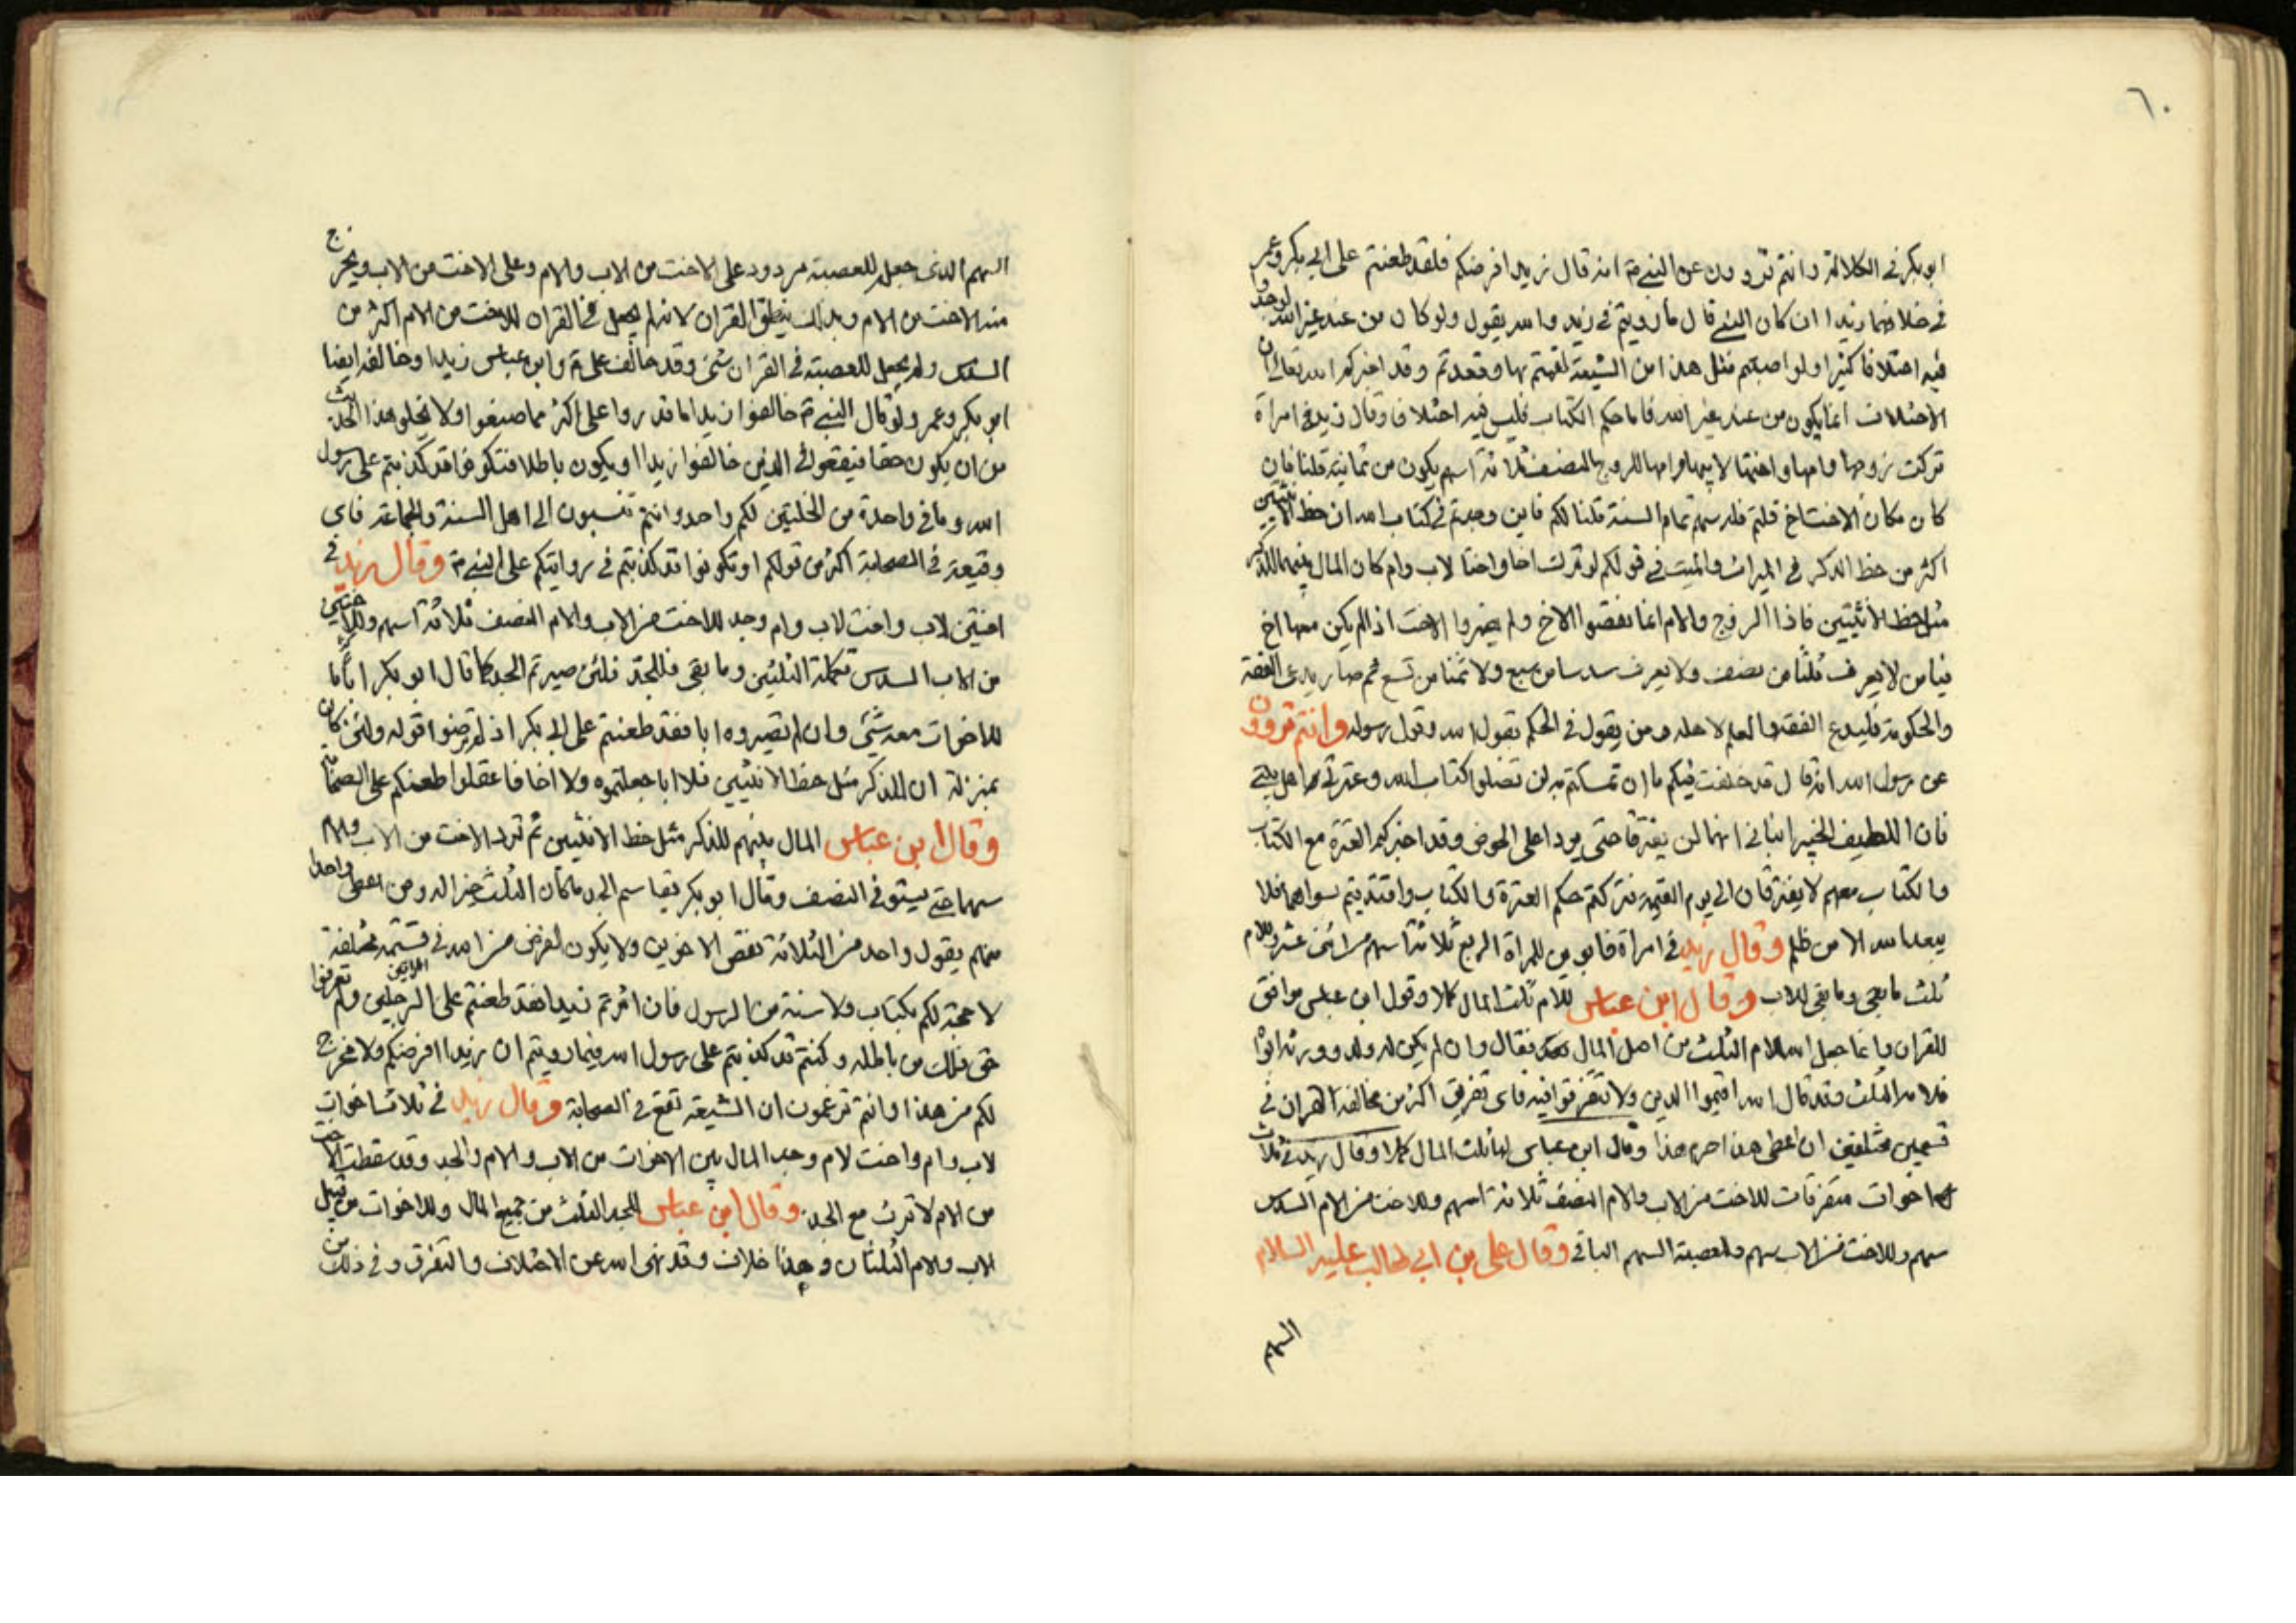 ٦٠
ابو بكر فى الكلالة وانتم تروون عن النبى ص انه قال زيد افرضكم فلقد طعنتم على ابى بكر وعمر
فى خلافهما زيدا ان كان النبى قال ما رويتم فى زيد والله يقول ولو كان من عند غير الله لوجدوا
فيه اختلافا كثيرا ولو اصبتم مثل هذا من الشيعة لقمتم بها وقعدتم وقد اخبركم الله تعالى ان
الاختلاف انما يكون من عند غير الله فاما حكم الكتاب فليس فيه اختلاف وقال زيد فى امراة
تركت زوجها وامها واختها لابيها وامها للزوج النصف ثلاثة اسهم يكون من ثمانية قلنا فان
كان مكان الاخت اخ قلتم فله سهم تمام الستة قلنا لكم فاين وجدتم فى كتاب الله ان حظ الانثيين
اكثر من حظ الذكر فى الميراث والميت فى قولكم لو ترك اخا واختا لاب وام كان المال بينهما للذكر
مثل حظ الانثيين فاذا الزوج والام انما نقصوا الاخ ولم يضروا الاخت اذا لم يكن معها اخ
فيا من لا يعرف ثلثا من نصف ولا يعرف سدسا من سبع ولا ثمنا من تسع ثم صار يدعى الفقه
والحكومة فليدع الفقه والعلم لاهله ومن يقول فى الحكم بقول الله وقول رسوله وانتم تروون
عن رسول الله انه قال قد خلفت فيكم ما ان تمسكتم به لن تضلوا كتاب الله وعترتى اهل بيتى
فان اللطيف الخبير انبانى انهما لن يفترقا حتى يردا على الحوض وقد اخبركم العترة مع الكتاب
والكتاب معهم لا يفترقان الى يوم القيمة فتركتم حكم العترة والكتاب واقتديتم بسواهما فلا
يبعد الله الا من ظلم وقال زيد فى امراة وابوين للمراة الربع ثلاثة اسهم من اثنى عشر وللام
ثلث ما بقى وما بقى للاب وقال ابن عباس للام ثلث المال كلا وقول ابن عباس موافق
للقران وانما جعل الله للام الثلث من اصل المال فقال وان لم يكن له ولد وورثه ابواه
فلامه الثلث وقد قال الله اقيموا الدين ولا تتفرقوا فيه فاى تفريق اكثر من مخالفة القران فى
قسمين مختلفين ان اعطى هذا احرم هذا وقال ابن عباس لها ثلث المال كلا وقال زيد فى ثلاث
اخوات متفرقات للاخت من الاب والام النصف ثلاثة اسهم وللاخت من الام السدس
سهم وللاخت من الاب سهم وللعصبة السهم الباقى وقال على بن ابى طالب عليه السلام
السهم
السهم الذى جعل للعصبة مردود على الاخت من الاب والام وعلى الاخت من الاب ويخرج
منه الاخت من الام وبذلك ينطق القران لانه لم يجعل فى القران للاخت من الام اكثر من
السدس ولم يجعل للعصبة فى القران شئ وقد خالف على ع وابن عباس زيدا وخالفه ايضا
ابو بكر وعمر ولو قال النبى ص خالفوا زيدا ما قدروا على اكثر مما صنعوا ولا يخلو هذا الحديث
من ان يكون حقا فيقعوا فى الذين خالفوا زيدا او يكون باطلا فتكونوا قد كذبتم على رسول
الله وما فى واحدة من الخلتين لكم واحد وانتم تنسبون الى اهل السنة والجماعة فاى
وقيعة فى الصحابة اكثر من قولكم او تكونوا قد كذبتم فى روايتكم على النبى ص وقال زيد فى
اختين لاب واخت لاب وام وجد للاخت من الاب والام النصف ثلاثة اسهم وللاختين
من الاب السدس تكملة الثلثين وما بقى فللجد فلئن صيرتم الجد كما قال ابو بكر ابا فما
للاخوات معه شئ وان لم تصيروه ابا فقد طعنتم على ابى بكر اذ لم ترضوا قوله ولئن كان
بمنزلة ان للذكر مثل حظ الانثيين فلا ابا جعلتموه ولا اخا فاعقلوا طعنكم على الصحابة
وقال ابن عباس المال بينهم للذكر مثل حظ الانثيين ثم ترد الاخت من الاب والام
سهما حتى يستوفى النصف وقال ابو بكر يقاسم الجد ما كان الثلث خيرا له ومن اعطى واحدا
منهم يقول واحد من الثلاثة نقض الاخوين ولا يكون لفرض من الله فى قسمة مختلفة
لا حجة لكم بكتاب ولا سنة من الرسول فان اثرتم زيدا فقد طعنتم على الرجلين الاخرين ولم تعرفوا
حق ذلك من باطله وكنتم قد كذبتم على رسول الله فيما رويتم ان زيدا افرضكم ولا مخرج
لكم من هذا وانتم تزعمون ان الشيعة تقع فى الصحابة وقال زيد فى ثلاث اخوات
لاب وام واخت لام وجد المال بين الاخوات من الاب والام والجد وقد سقطت الاخت
من الام لا ترث مع الجد وقال ابن عباس للجد الثلث من جميع المال وللاخوات من قبل
الاب والام الثلثان وهذا خلاف وقد نهى الله عن الاختلاف والتفرق وفى ذلك من